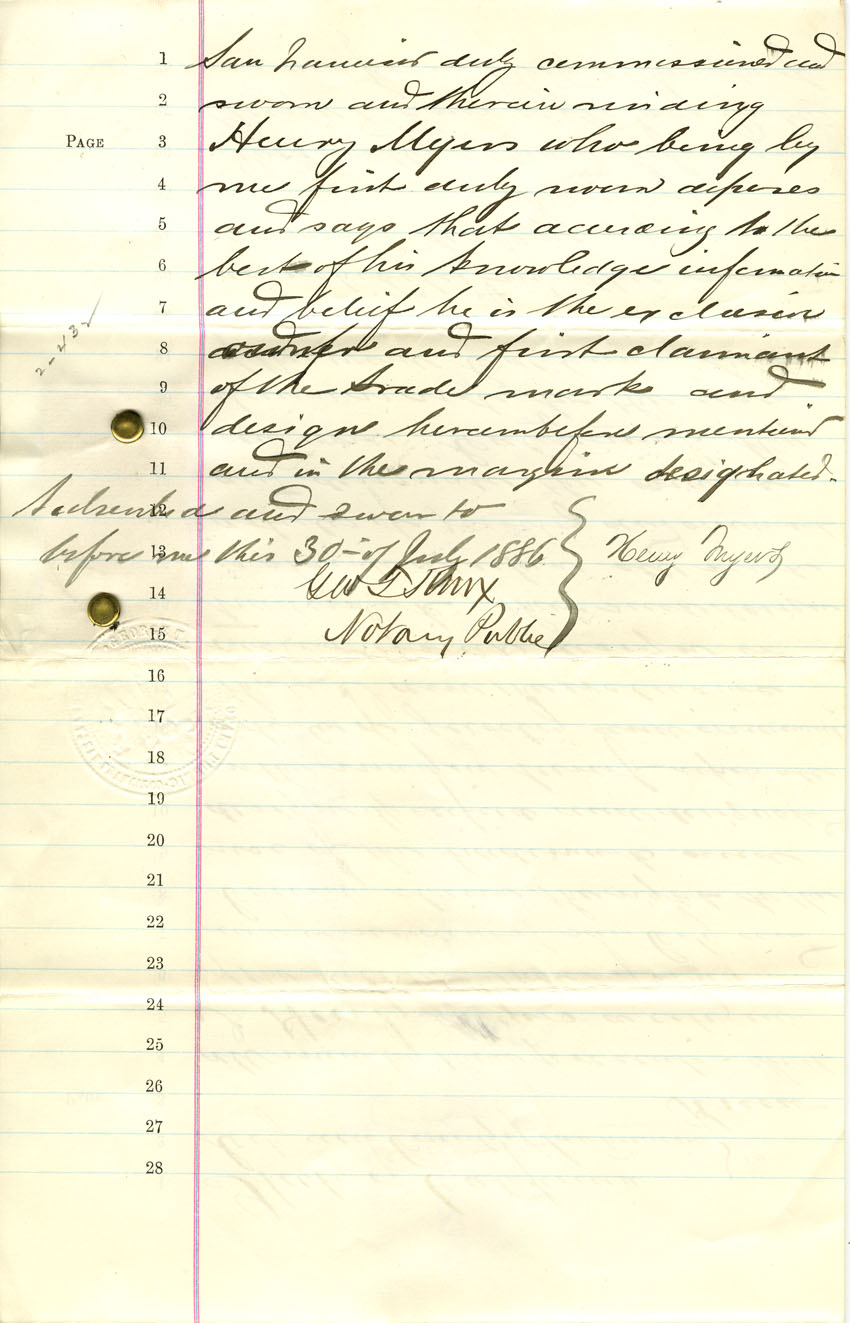 1 San Francisco duly commissioned and
2 sworn and therein residing
PAGE 3 Henry Myers who being by
4 me first duly sworn deposes
5 and says that according to the
6 best of his knowledge information
7 and belief he is the exclusive
2-432
8 and first claimant
9 of the trade mark and
10 design hereinbefore mentiond
11 and in the margin designated.
12 Subscribed and sworn to
13 before me this 30- of July 1886 Henry Myers
14 Geo T Knox
15 Notary Public
16
17
18
19
20
21
22
23
24
25
26
27
28